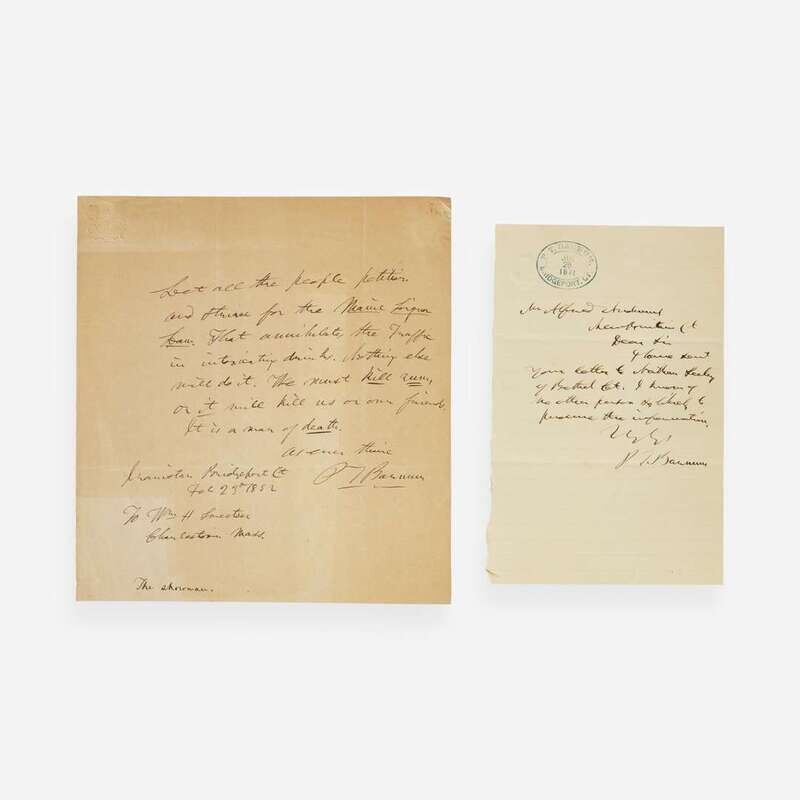 Let all the people petition
and strive for the Maine Liquor
Law. That annihilates the Traffic
in intoxicating drink. Nothing else
will do it. We must kill rum,
or it will kill us or our friends.
It is a man of death.
As ever thine
Iranistan Bridgeport Ct
Feb 29th 1852
P T Barnum
To Wm H
Charlestown Mass.
The showman.
P. T. BARNUM.
26
BRIDGEPORT, CT.
Mr Alfred
Ct
Dear Sir
I have sent
Your letter to Nathan Seeley
of Bethel Ct. I know of
no other person so likely to
possess the information.
P. T. Barnum